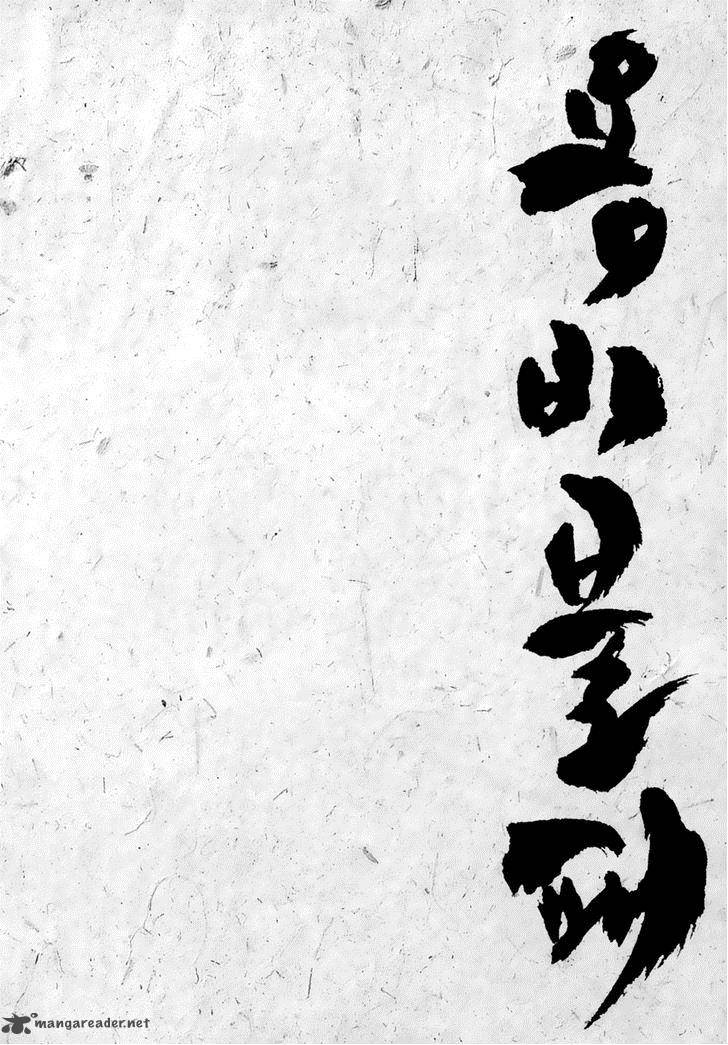 용비불패
mangareader.net